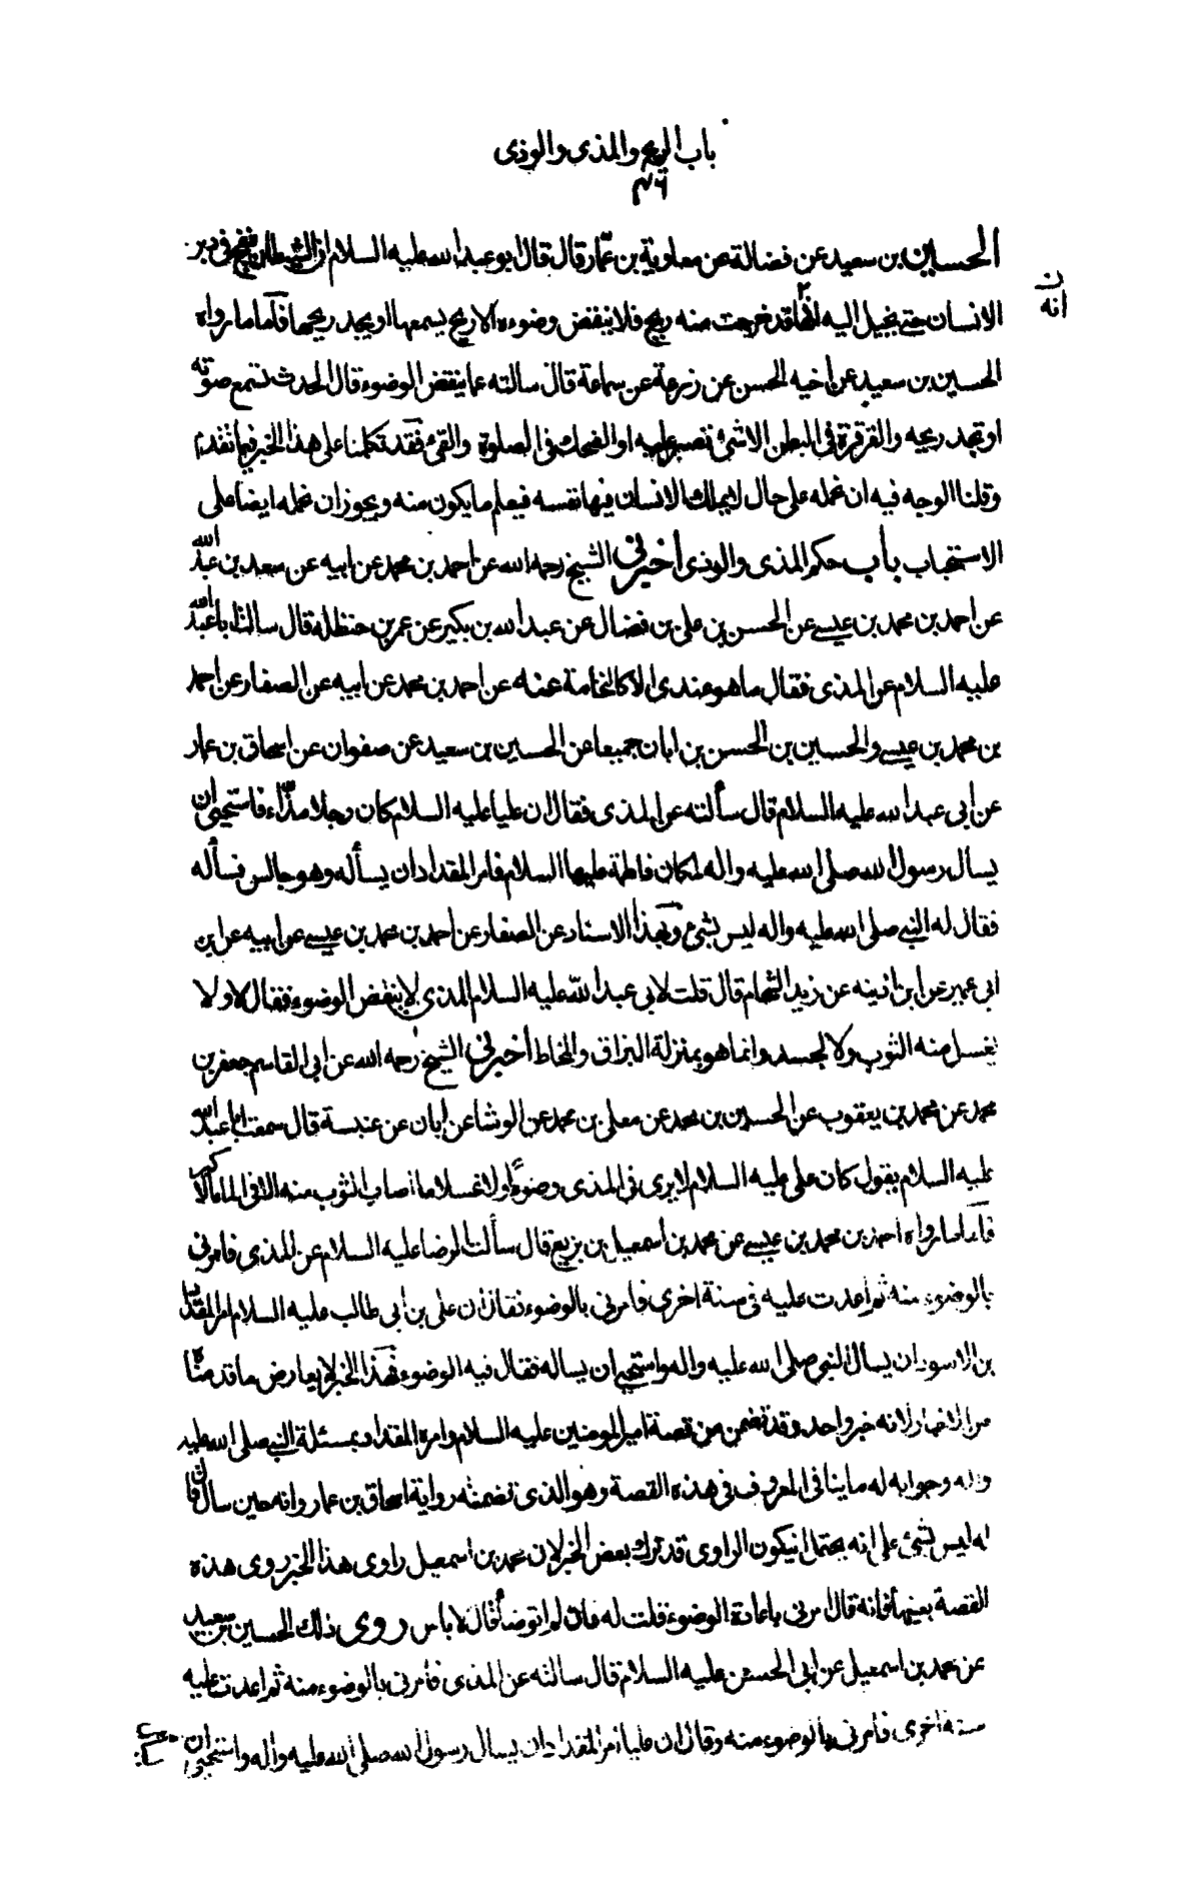 باب الريح والمذى والوذى
٤٦
الحسين بن سعيد عن فضالة عن معاوية بن عمار قال قال ابو عبدالله عليه السلام ان الشيطان ينفخ فى دبر
الانسان حتى يخيل اليه انه قد خرجت منه ريح فلا ينقض وضوءه الا ريح يسمعها او يجد ريحها فاما ما رواه
انه
الحسين بن سعيد عن اخيه الحسن عن زرعة عن سماعة قال سالته عما ينقض الوضوء قال الحدث تسمع صوته
او تجد ريحه والقرقرة فى البطن الا شئ تصبر عليه او الضحك فى الصلوة والقئ فقد تكلمنا على هذا الخبر فيما تقدم
وقلنا الوجه فيه ان نحمله على حال لا يملك الانسان فيها نفسه فيعلم ما يكون منه ويجوز ان نحمله ايضا على
الاستحباب باب حكم المذى والوذى اخبرنى الشيخ رحمه الله عن احمد بن محمد عن ابيه عن سعد بن عبد الله
عن احمد بن محمد بن عيسى عن الحسن بن على بن فضال عن عبدالله بن بكير عن عمر بن حنظلة قال سالت ابا عبدالله
عليه السلام عن المذى فقال ما هو عندى الا كالنخامة عنه عن احمد بن محمد عن ابيه عن الصفار عن احمد
بن محمد بن عيسى والحسين بن الحسن بن ابان جميعا عن الحسين بن سعيد عن صفوان عن اسحاق بن عمار
عن ابى عبدالله عليه السلام قال سألته عن المذى فقال ان عليا عليه السلام كان رجلا مذّاء فاستحيى ان
يسال رسول الله صلى الله عليه واله لمكان فاطمة عليها السلام فامر المقداد ان يسأله وهو جالس فسأله
فقال له النبى صلى الله عليه واله ليس بشئ وبهذا الاسناد عن الصفار عن احمد بن محمد بن عيسى عن ابيه عن ابن
ابى عمير عن ابن اذينه عن زيد الشحام قال قلت لابى عبدالله عليه السلام المذى لا ينقض الوضوء فقال لا ولا
يغسل منه الثوب ولا الجسد وانما هو بمنزلة البزاق والمخاط اخبرنى الشيخ رحمه الله عن ابى القاسم جعفر بن
محمد عن محمد بن يعقوب عن الحسين بن محمد عن معلى بن محمد عن الوشا عن ابان عن عنبسة قال سمعت ابا عبدالله
عليه السلام يقول كان على عليه السلام لا يرى فى المذى وضوءا ولا غسلا ما اصاب الثوب منه الا فى الماء الاكبر
فاما ما رواه احمد بن محمد بن عيسى عن محمد بن اسمعيل بن بزيع قال سألت الرضا عليه السلام عن المذى فامرنى
بالوضوء منه ثم اعدت عليه فى سنة اخرى فامرنى بالوضوء فقال ان على بن ابى طالب عليه السلام امر المقداد
بن الاسود ان يسال النبى صلى الله عليه واله واستحيى ان يساله فقال فيه الوضوء فهذا الخبر لا يعارض ما قدمناه
من الاخبار لانه خبر واحد وقد تضمن من قصة امير المؤمنين عليه السلام وامره المقداد بمسئلة النبى صلى الله عليه
واله وجوابه له ما ينافى المعروف فى هذه القصة وهو الذى تضمنته رواية اسحاق بن عمار وانه حين ساله قال
له ليس بشئ على انه يحتمل ان يكون الراوى قد ترك بعض الخبر لان محمد بن اسمعيل راوى هذا الخبر روى هذه
القصة بعينها فانه قال امرنى باعادة الوضوء قلت له فان لم اتوضأ قال لا باس روى ذلك الحسين بن سعيد
عن محمد بن اسمعيل عن ابى الحسن عليه السلام قال سالته عن المذى فأمرنى بالوضوء منه ثم اعدت عليه
سنة اخرى فامرنى بالوضوء منه وقال ان عليا امر المقداد ان يسال رسول الله صلى الله عليه واله واستحيى ان